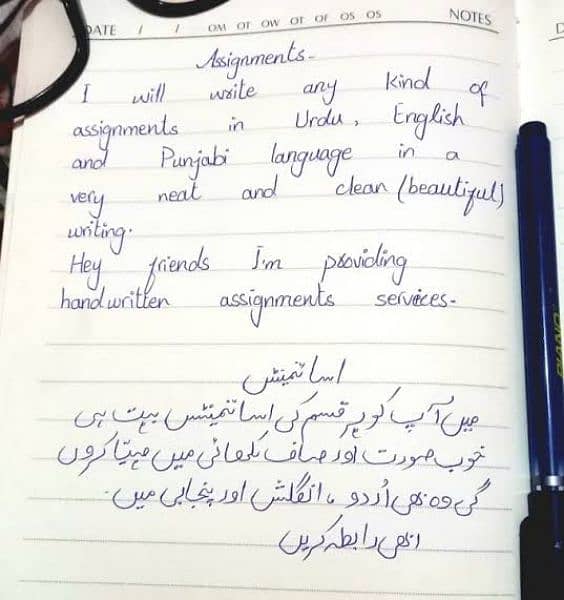 DATE / / OM OT OW OT OF OS OS NOTES
Assignments-
I will write any kind of
assignments in Urdu, English
and Punjabi language in a
very neat and clean (beautiful)
writing.
Hey friends I'm providing
handwritten assignments services-
اسائنمنٹس
میں آپ کو ہر قسم کی اسائنمنٹس بہت ہی
خوب صورت اور صاف لکھائی میں مہیّا کروں
گی وہ بھی اُردو ، انگلش اور پنجابی میں۔
ابھی رابطہ کریں